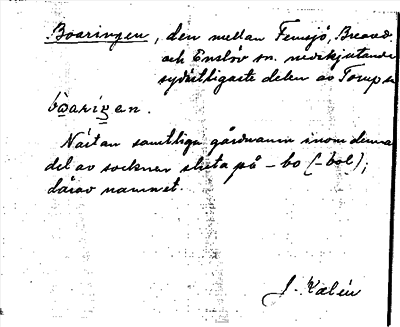 Boaringen, den mellan Femsjö, Breared
och Enslöv sn. nedskjutande
sydöstligaste delen av Torup sn
bòarigen.
Nästan samtliga gårdnamn inom denna
del av socknen sluta på -bo (-bol);
därav namnet.
J. Kalén